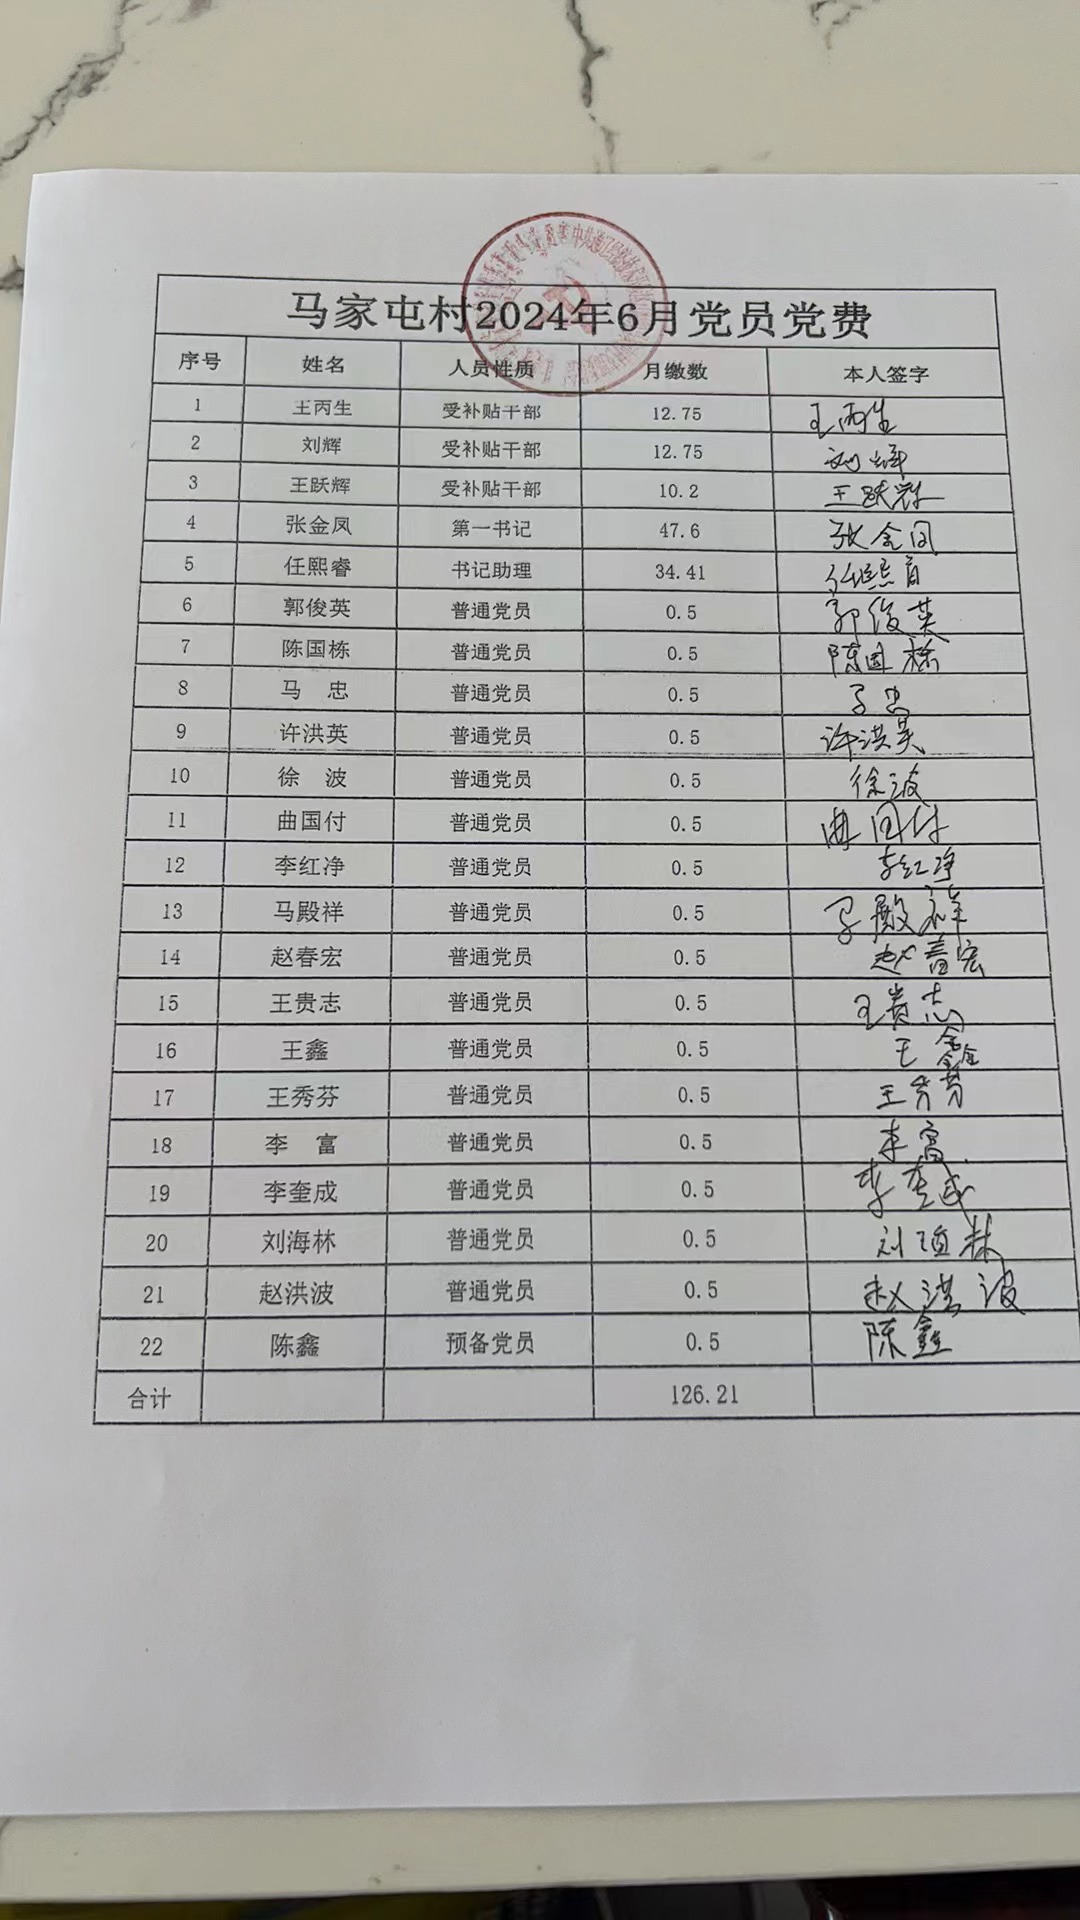 马家屯村2024年6月党员党费
序号 姓名 人员性质 月缴数 本人签字
1 王丙生 受补贴干部 12.75 王丙生
2 刘辉 受补贴干部 12.75 刘辉
3 王跃辉 受补贴干部 10.2 王跃辉
4 张金凤 第一书记 47.6 张金凤
5 任熙睿 书记助理 34.41 任熙睿
6 郭俊英 普通党员 0.5 郭俊英
7 陈国栋 普通党员 0.5 陈国栋
8 马 忠 普通党员 0.5 马忠
9 许洪英 普通党员 0.5 许洪英
10 徐 波 普通党员 0.5 徐波
11 曲国付 普通党员 0.5 曲国付
12 李红净 普通党员 0.5 李红净
13 马殿祥 普通党员 0.5 马殿祥
14 赵春宏 普通党员 0.5 赵春宏
15 王贵志 普通党员 0.5 王贵志
16 王鑫 普通党员 0.5 王鑫
17 王秀芬 普通党员 0.5 王秀芬
18 李 富 普通党员 0.5 李富
19 李奎成 普通党员 0.5 李奎成
20 刘海林 普通党员 0.5 刘海林
21 赵洪波 普通党员 0.5 赵洪波
22 陈鑫 预备党员 0.5 陈鑫
合计 126.21